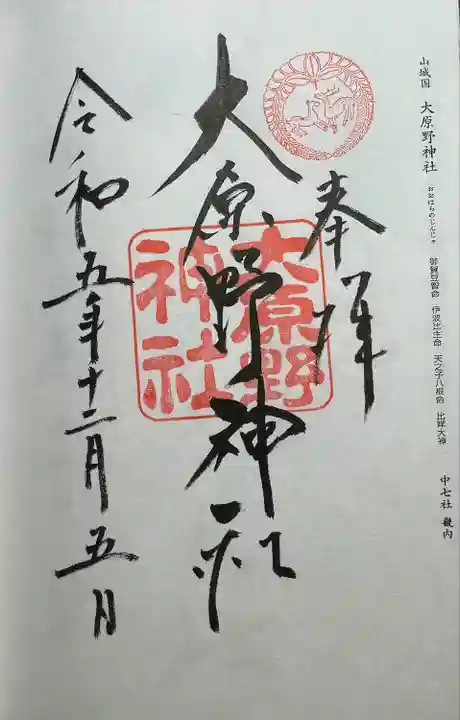 山城国 大原野神社 おおはらのじんじゃ 御賀豆智命 伊波比主命 天之子八根命 比咩大神 中七社 畿内
奉拝
大原野神社
大原野
神社
令和五年十二月五日